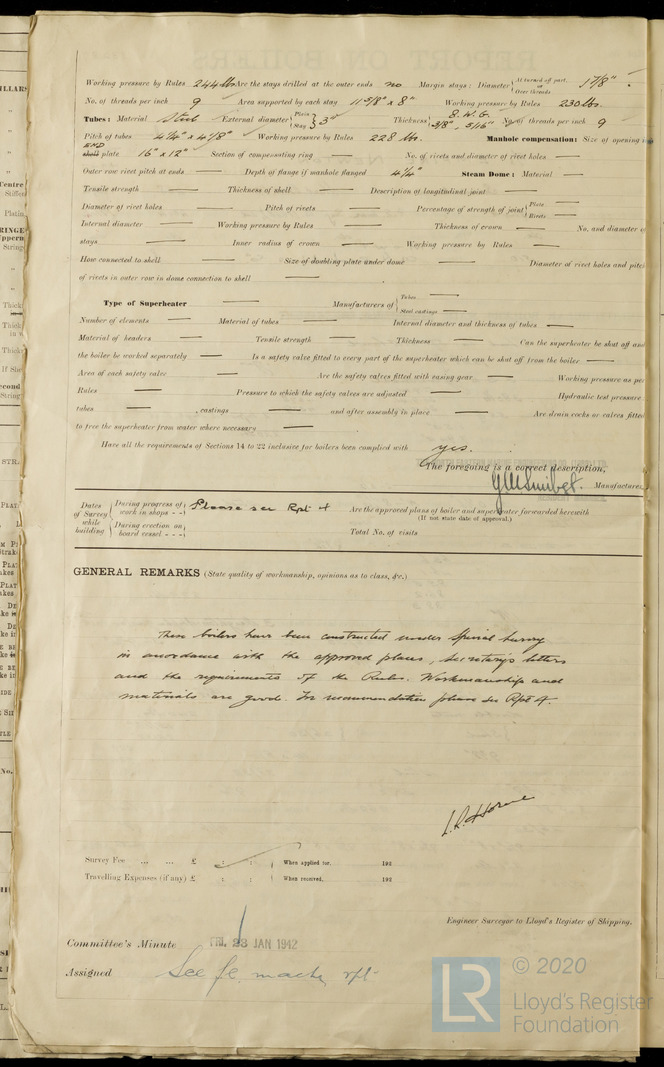 Working pressure by Rules 244 lbs Are the stays drilled at the outer ends no Margin stays: Diameter { At turned off part, or Over threads 1 7/8"
No. of threads per inch 9 Area supported by each stay 11 5/8" x 8" Working pressure by Rules 230 lbs.
Tubes: Material Steel External diameter { Plain Stay } 3" Thickness { 8. W.G. 3/8", 5/16" No. of threads per inch 9
Pitch of tubes 4 1/4" x 4 1/8" Working pressure by Rules 228 lbs. Manhole compensation: Size of opening in
END shell plate 16" x 12" Section of compensating ring — No. of rivets and diameter of rivet holes —
Outer row rivet pitch at ends — Depth of flange if manhole flanged 4 1/4" Steam Dome: Material —
Tensile strength — Thickness of shell — Description of longitudinal joint —
Diameter of rivet holes — Pitch of rivets — Percentage of strength of joint { Plate — Rivets —
Internal diameter — Working pressure by Rules — Thickness of crown — No. and diameter of
stays — Inner radius of crown — Working pressure by Rules —
How connected to shell — Size of doubling plate under dome — Diameter of rivet holes and pitch
of rivets in outer row in dome connection to shell —
Type of Superheater — Manufacturers of { Tubes — Steel castings —
Number of elements — Material of tubes — Internal diameter and thickness of tubes —
Material of headers — Tensile strength — Thickness — Can the superheater be shut off and
the boiler be worked separately — Is a safety valve fitted to every part of the superheater which can be shut off from the boiler —
Area of each safety valve — Are the safety valves fitted with easing gear — Working pressure as per
Rules — Pressure to which the safety valves are adjusted — Hydraulic test pressure:
tubes — , castings — and after assembly in place — Are drain cocks or valves fitted
to free the superheater from water where necessary —
Have all the requirements of Sections 14 to 22 inclusive for boilers been complied with yes.
The foregoing is a correct description,
Manufacturer
Dates of Survey while building { During progress of work in shops - - } Please see Rpt 4 Are the approved plans of boiler and superheater forwarded herewith
(If not state date of approval.)
{ During erection on board vessel - - - } Total No. of visits
GENERAL REMARKS (State quality of workmanship, opinions as to class, &c.)
These boilers have been constructed under Special Survey
in accordance with the approved plans, Secretary's letters
and the requirements of the Rules. Workmanship and
materials are good. For recommendation please see Rpt 4.
L.R. Horne
Survey Fee ... ... £ : : When applied for, 192
Travelling Expenses (if any) £ : : When received, 192
Engineer Surveyor to Lloyd's Register of Shipping.
Committee's Minute FRI. 23 JAN 1942
Assigned See J.E. machy rpt
LR © 2020
Lloyd's Register
Foundation